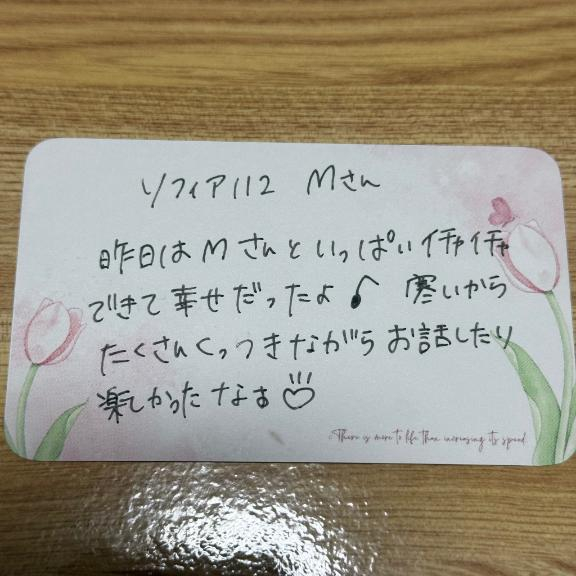 ソフィア112 Mさん
昨日はMさんといっぱいイチャイチャ
できて幸せだったよ♪ 寒いから
たくさんくっつきながらお話したり
楽しかったなぁ♡
There is more to life than increasing its speed.